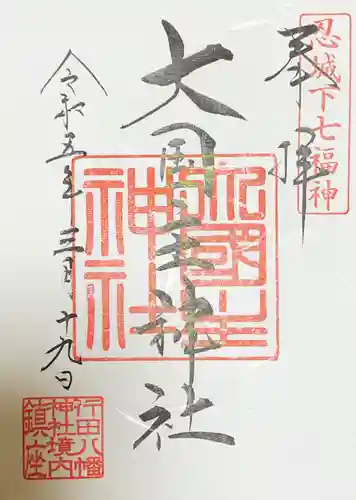 忍城下七福神
奉拝
大国主神社
大國主神社
令和五年三月十九日
行田八幡神社境内鎮座